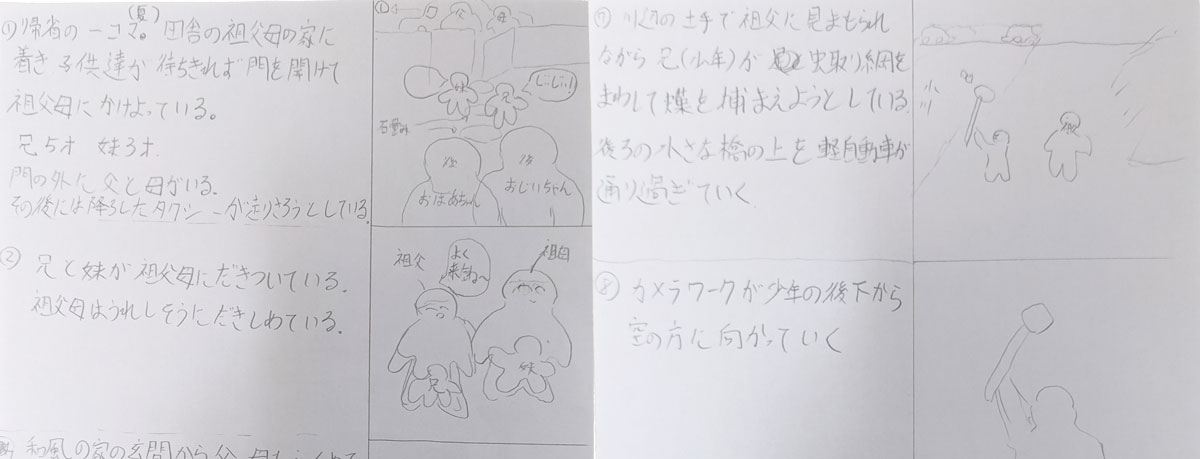 ① 帰省の一コマ。(夏) 田舎の祖父母の家に
着き子供達が待ちきれず門を開けて
祖父母にかけよっている。
兄5才 妹3才
門の外に父と母がいる。
その後には降ろしたタクシーが走りさろうとしている。
①
父
母
妹
兄
じーじぃ!
石畳み
後
後
おばあちゃん
おじいちゃん
② 兄と妹が祖父母にだきついている。
祖父母はうれしそうにだきしめている。
祖父
よく
来たね〜
祖母
兄
妹
和風の家の玄関から父、母も
⑦ 川辺の土手で祖父に見まもられ
ながら兄(少年)が虫取り網を
まわして蝶を捕まえようとしている。
後ろの小さな橋の上を軽自動車が
通り過ぎていく
小川
⑧ カメラワークが少年の後下から
空の方に向かっていく